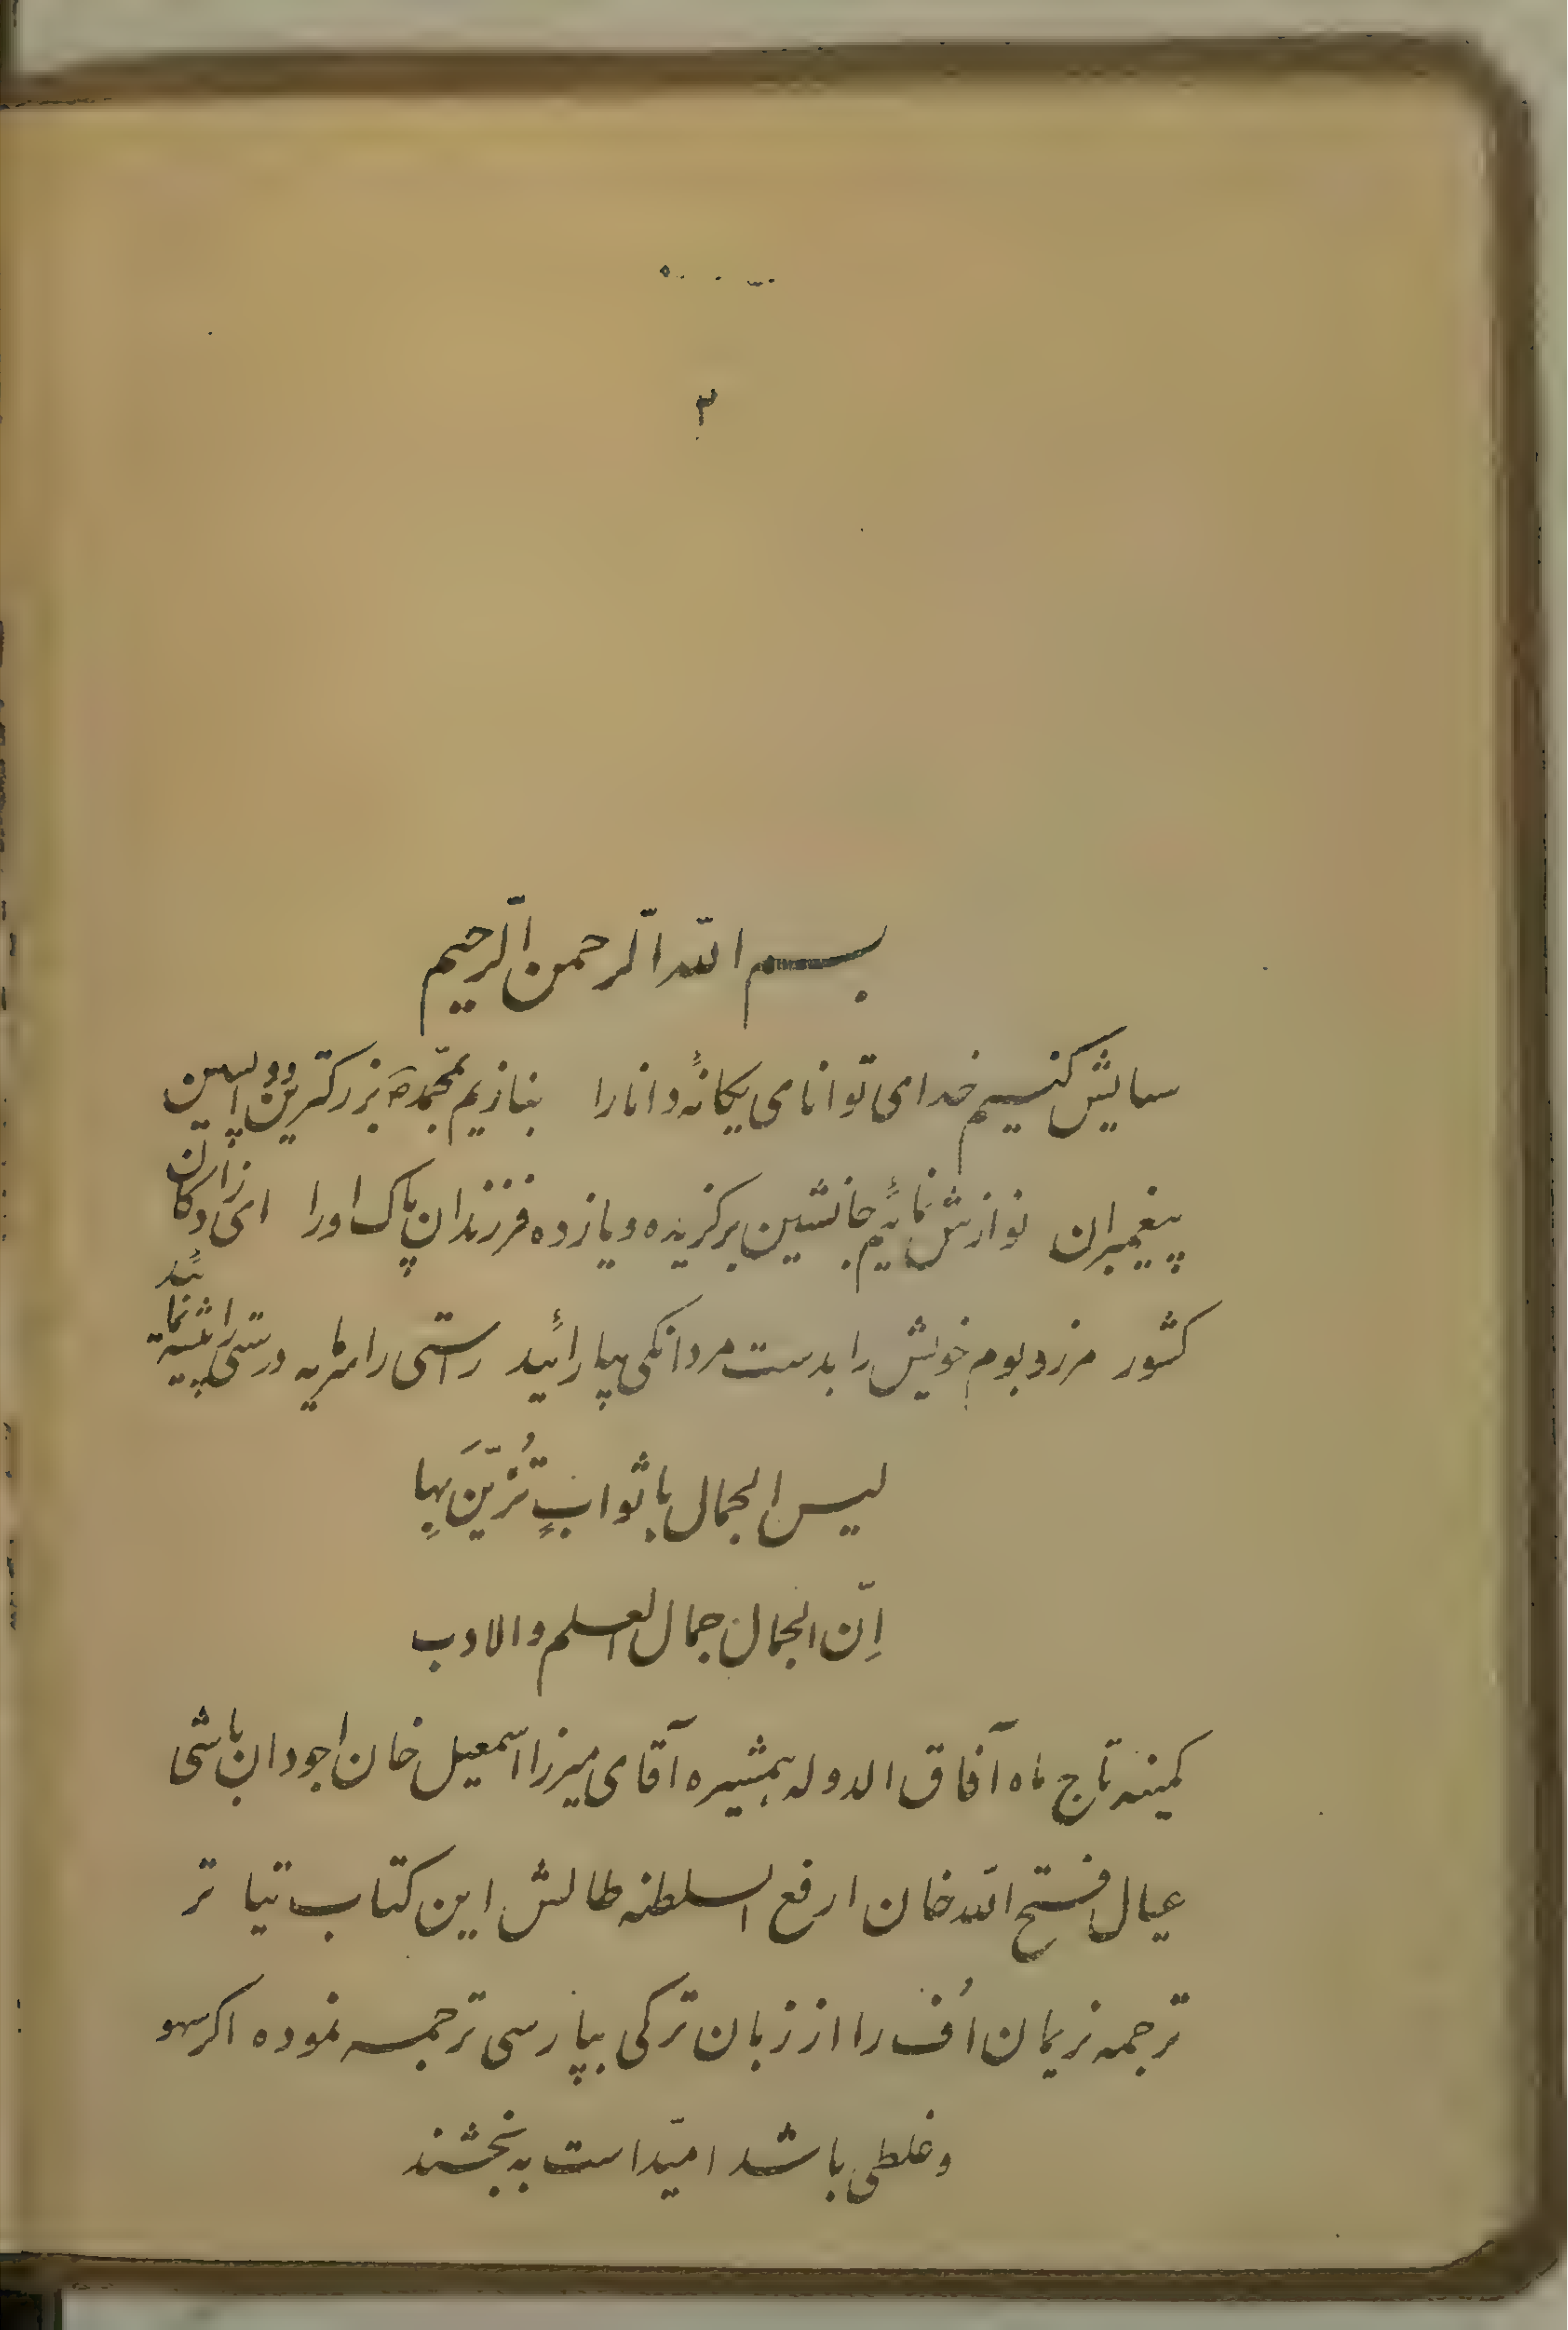 ۲
بسم الله الرحمن الرحیم
ستایش کنیم خدای توانای یکانهٔ دانا را بنازیم بمحمد ص بزرکترین و واپسین
پیغمبران نوازش نمائیم جانشین برکزیده و یازده فرزندان پاک اورا ای زادکان
کشور مرزوبوم خویش را بدست مردانکی بیارائید راستی را مایه درستی را پیشه نمائید
لیس الجمال باثوابٍ تُزَیّنَ بِها
اِنّ الجمال جمال العلم والادب
کمینه تاج ماه آفاق الدوله همشیره آقای میرزا اسمعیل خان اجودان باشی
عیال فتح الله خان ارفع السلطنه طالش این کتاب تیاتر
ترجمه نریمان اُف را از زبان ترکی بپارسی ترجمه نموده اکر سهو
و غلطی باشد امیّد است به بخشند